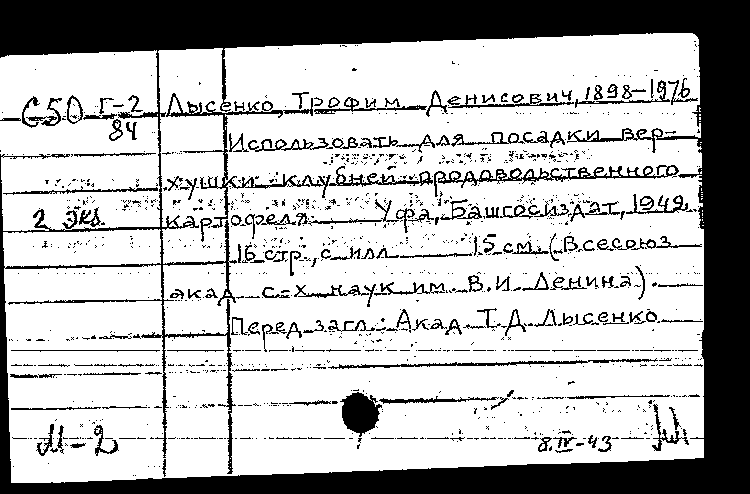 С50 Г-2
84
Лысенко, Трофим Денисович, 1898-1976
Использовать для посадки вер-
хушки клубней продовольственного
2 экз. картофеля. Уфа, Башгосиздат, 1942.
16 стр., с илл. 15 см. (Всесоюз.
акад. с-х наук им. В.И. Ленина).
Перед загл.: Акад. Т.Д. Лысенко
М-2
8.IV-43